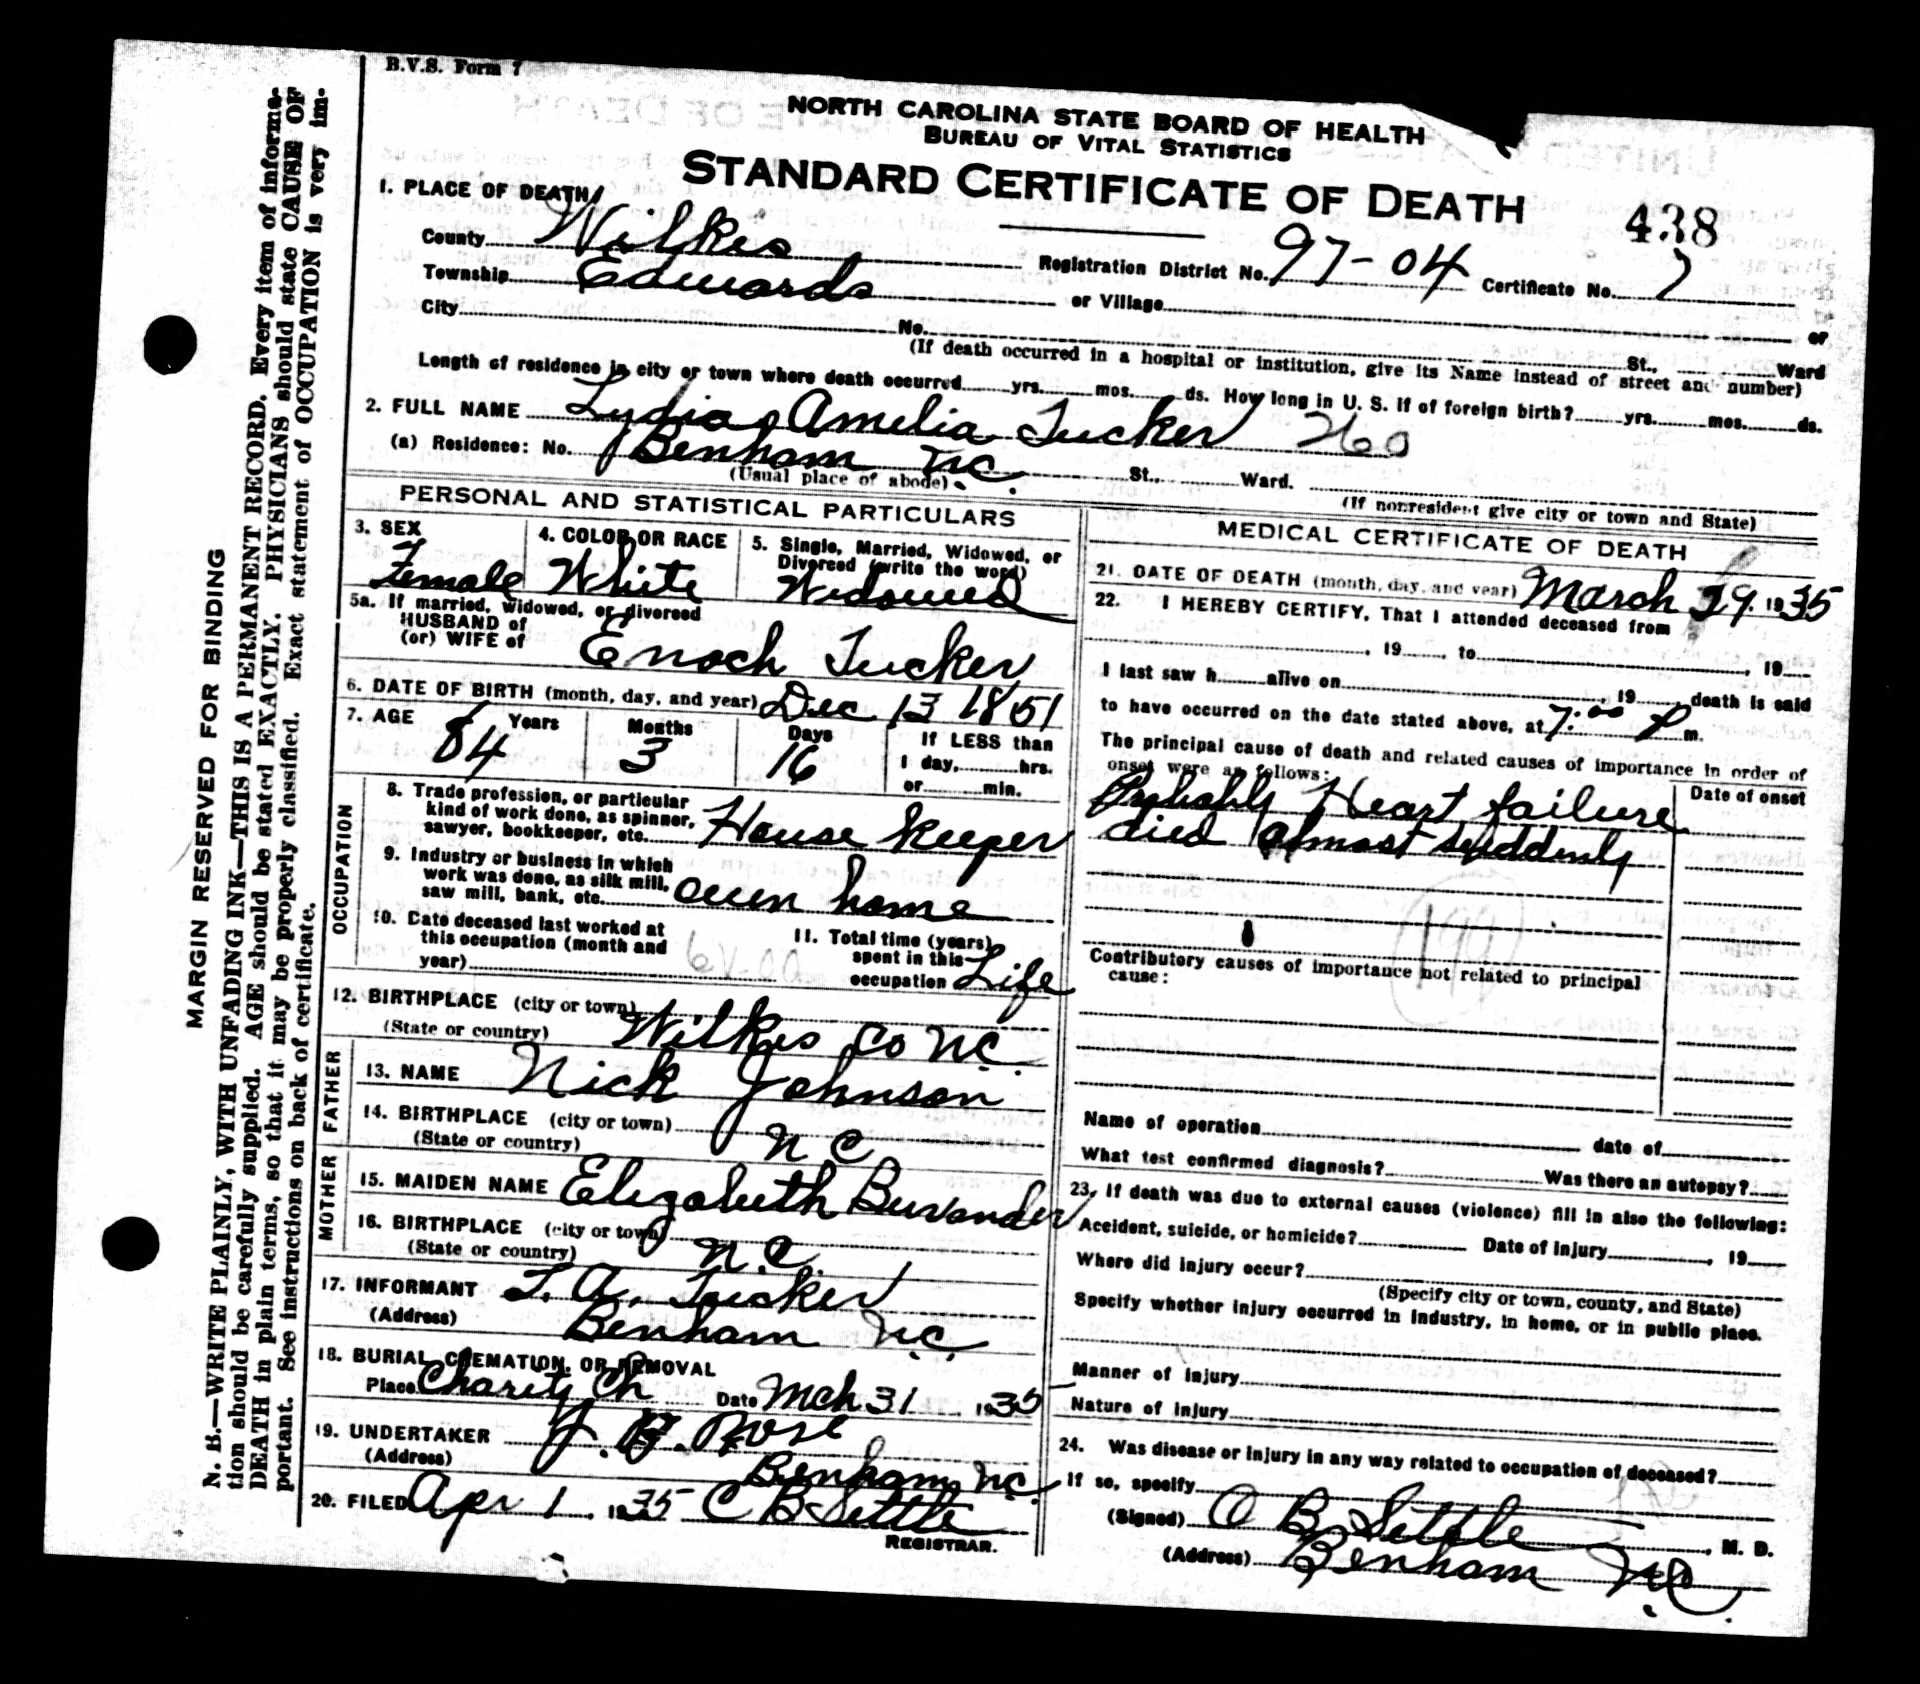 B.V.S. Form 7
NORTH CAROLINA STATE BOARD OF HEALTH
BUREAU OF VITAL STATISTICS
STANDARD CERTIFICATE OF DEATH
438
1. PLACE OF DEATH
County Wilkes Registration District No. 97-04 Certificate No. 7
Township Edwards or Village or
City No. St., Ward
(If death occurred in a hospital or institution, give its Name instead of street and number)
Length of residence in city or town where death occurred yrs. mos. ds. How long in U. S. if of foreign birth? yrs. mos. ds.
2. FULL NAME Lydia Amelia Tucker 260
(a) Residence: No. Benham N.C. St., Ward.
(Usual place of abode) (If nonresident give city or town and State)
PERSONAL AND STATISTICAL PARTICULARS
3. SEX 4. COLOR OR RACE 5. Single, Married, Widowed, or
Divorced (write the word)
Female White Widowed
5a. If married, widowed, or divorced
HUSBAND of
(or) WIFE of Enoch Tucker
6. DATE OF BIRTH (month, day, and year) Dec 13 1851
7. AGE Years Months Days If LESS than
84 3 16 1 day, hrs.
or min.
OCCUPATION
8. Trade profession, or particular
kind of work done, as spinner,
sawyer, bookkeeper, etc. House Keeper
9. Industry or business in which
work was done, as silk mill,
saw mill, bank, etc. own home
10. Date deceased last worked at
this occupation (month and
year)
11. Total time (years)
spent in this
occupation Life
12. BIRTHPLACE (city or town)
(State or country) Wilkes Co N.C.
FATHER
13. NAME Nick Johnson
14. BIRTHPLACE (city or town)
(State or country) N C
MOTHER
15. MAIDEN NAME Elizabeth
16. BIRTHPLACE (city or town)
(State or country) N.C.
17. INFORMANT T. A. Tucker
(Address) Benham N.C.
18. BURIAL, CREMATION, OR REMOVAL
Place Charity Ch Date Mch 31 1935
19. UNDERTAKER Rose
(Address) Benham N.C.
20. FILED Apr 1 1935 C B Settle
REGISTRAR.
MEDICAL CERTIFICATE OF DEATH
21. DATE OF DEATH (month, day, and year) March 29. 1935
22. I HEREBY CERTIFY, That I attended deceased from
, 19 , to , 19
I last saw h alive on , 19 , death is said
to have occurred on the date stated above, at 7:00 P m.
The principal cause of death and related causes of importance in order of
onset were as follows:
Date of onset
Probably Heart failure
died almost suddenly
Contributory causes of importance not related to principal
cause:
Name of operation date of
What test confirmed diagnosis? Was there an autopsy?
23. If death was due to external causes (violence) fill in also the following:
Accident, suicide, or homicide? Date of injury , 19
Where did injury occur?
(Specify city or town, county, and State)
Specify whether injury occurred in industry, in home, or in public place.
Manner of injury
Nature of injury
24. Was disease or injury in any way related to occupation of deceased?
If so, specify
(Signed) C B Settle , M. D.
(Address) Benham N.C.
MARGIN RESERVED FOR BINDING
N. B.—WRITE PLAINLY, WITH UNFADING INK—THIS IS A PERMANENT RECORD. Every item of informa-
tion should be carefully supplied. AGE should be stated EXACTLY. PHYSICIANS should state CAUSE OF
DEATH in plain terms, so that it may be properly classified. Exact statement of OCCUPATION is very im-
portant. See instructions on back of certificate.